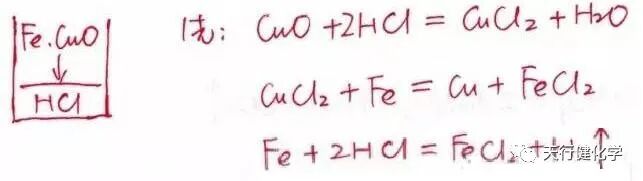 Fe.CuO
↓
HCl
优: CuO +2HCl = CuCl₂ + H₂O
CuCl₂ + Fe = Cu + FeCl₂
Fe + 2HCl = FeCl₂ + H ↑
天行健化学